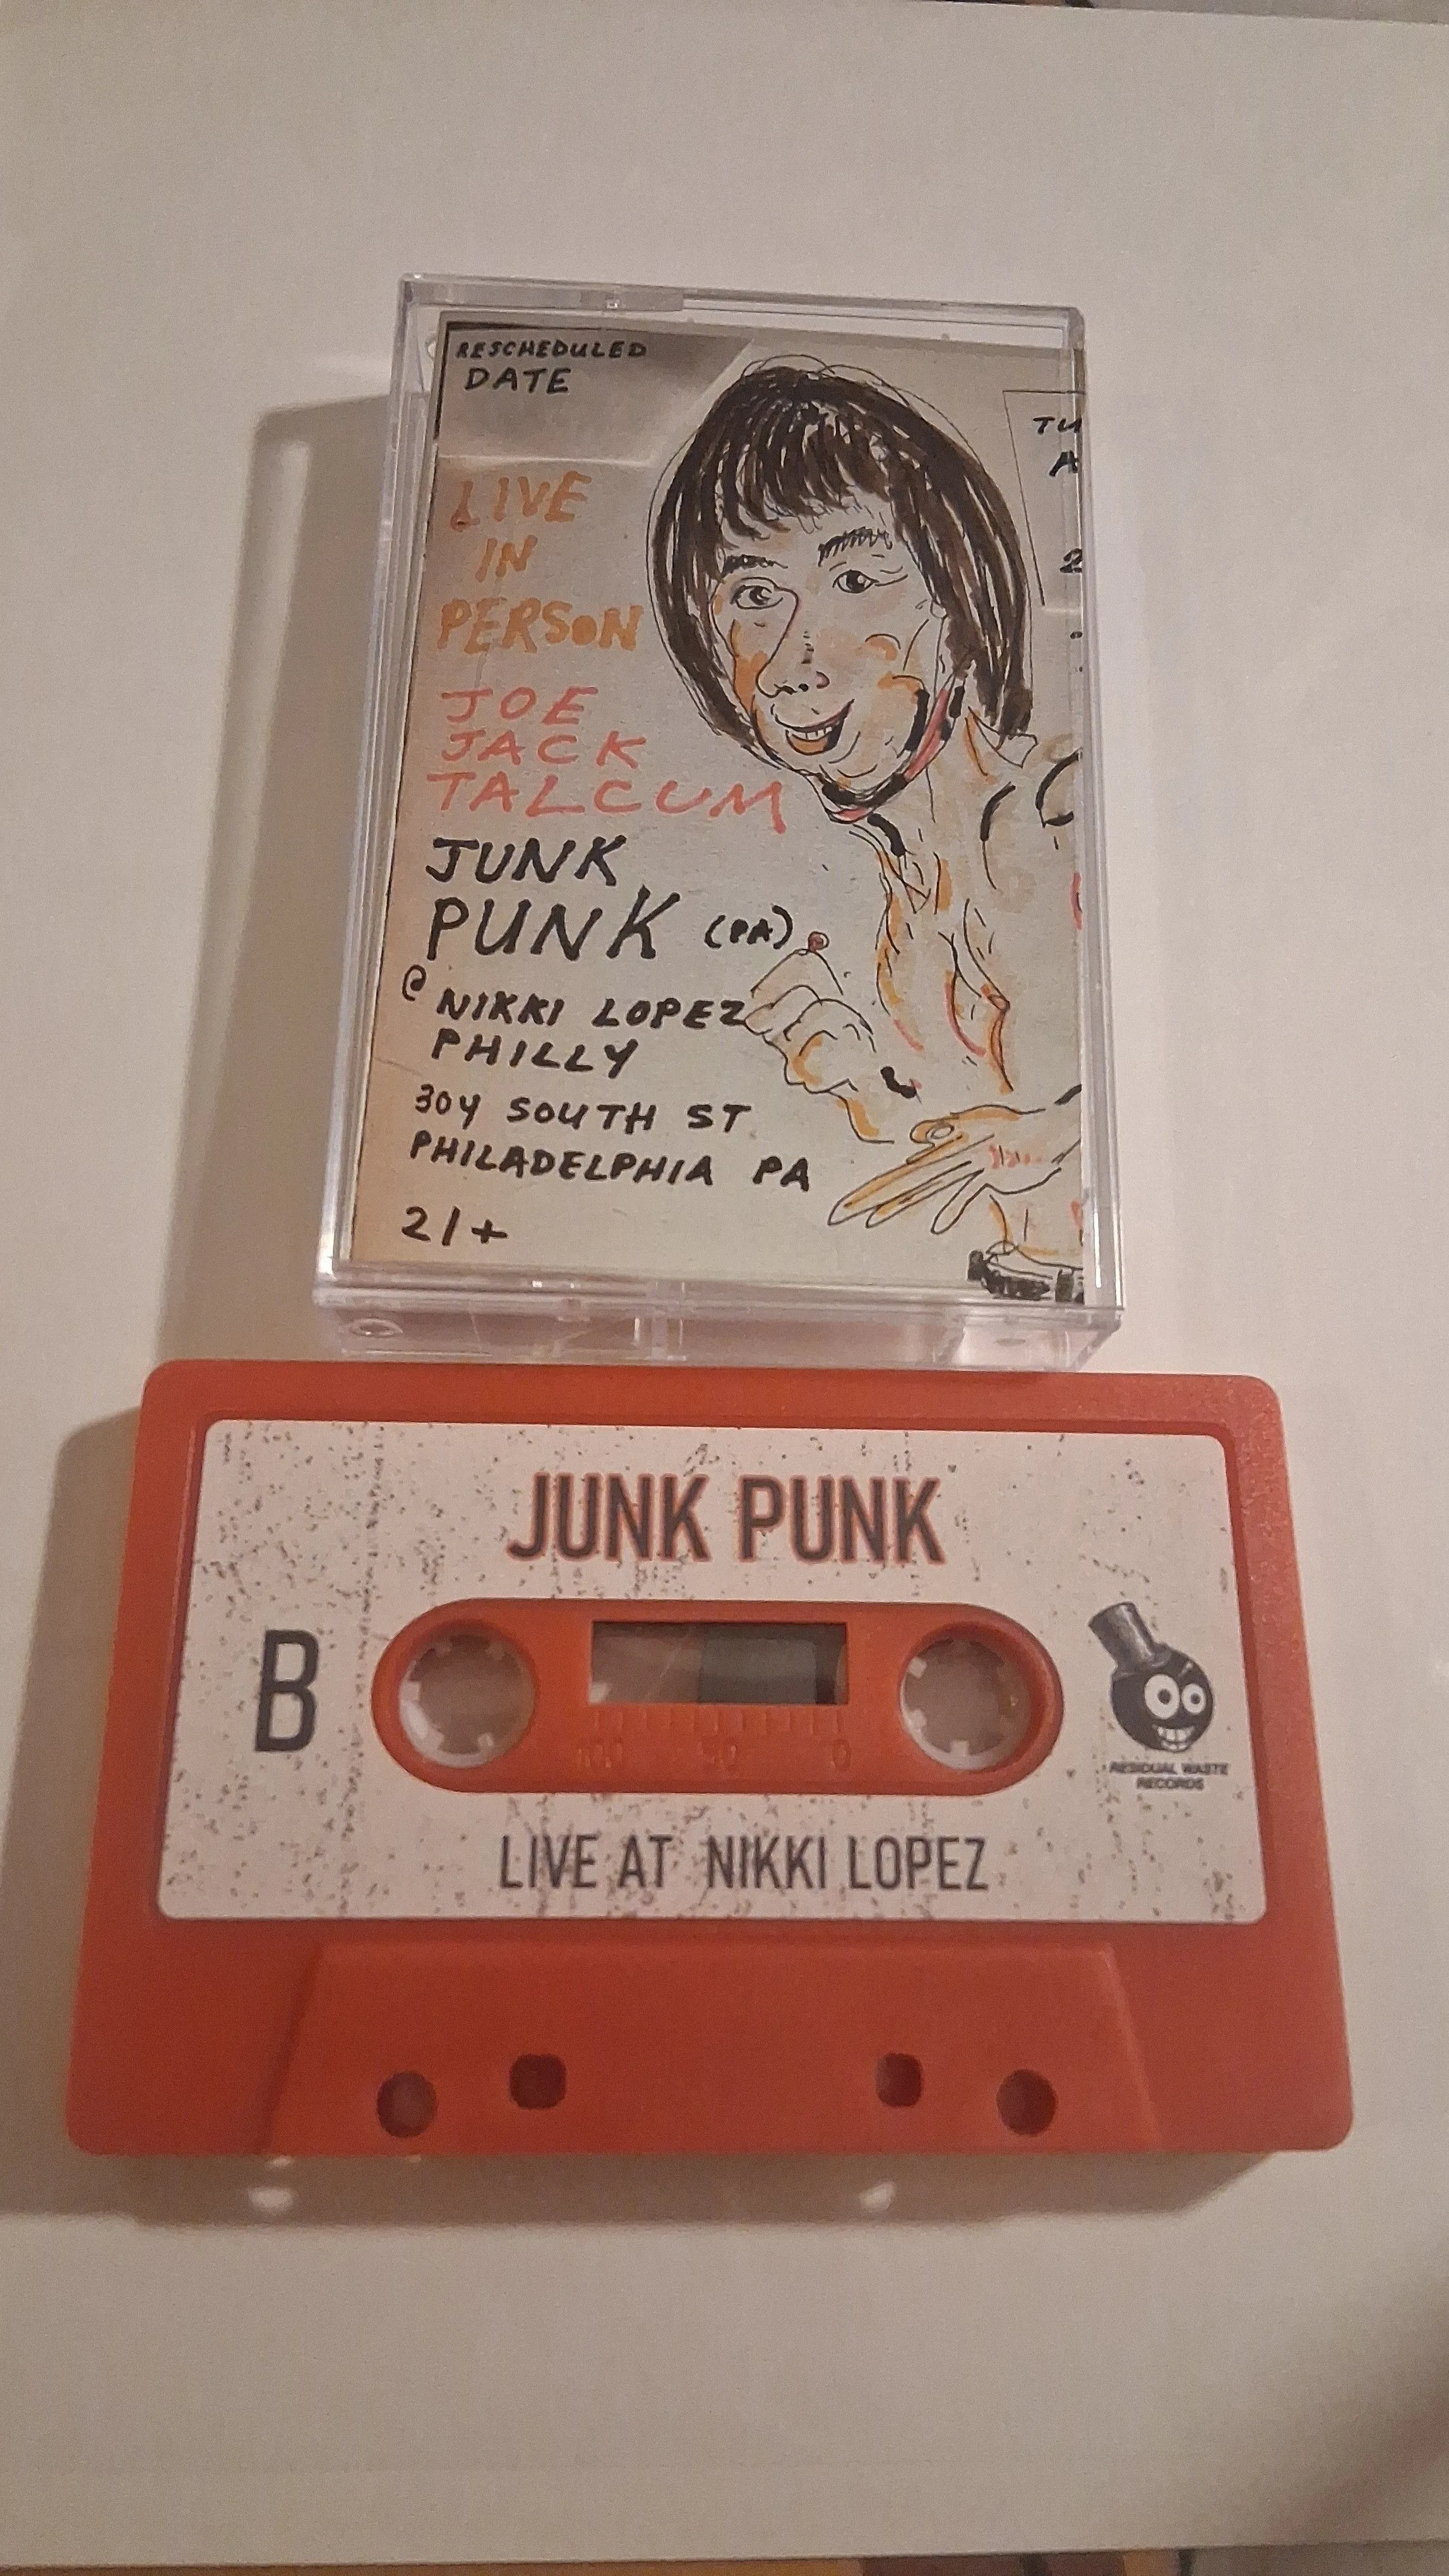 RESCHEDULED
DATE
LIVE
IN
PERSON
JOE
JACK
TALCUM
JUNK
PUNK (PA)
@ NIKKI LOPEZ
PHILLY
304 SOUTH ST
PHILADELPHIA PA
21+
TU
A
2
JUNK PUNK
B
100 50 0
RESIDUAL WASTE
RECORDS
LIVE AT NIKKI LOPEZ